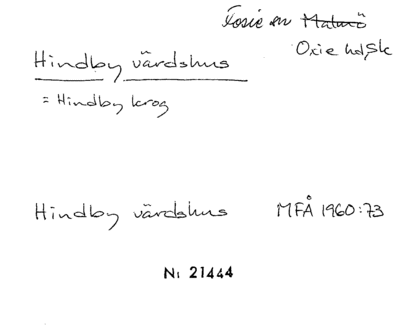 Fosie sn Malmö
Oxie hd, Sk
Hindby värdshus
= Hindby krog
Hindby värdshus MFÅ 1960:73
Nı 21444